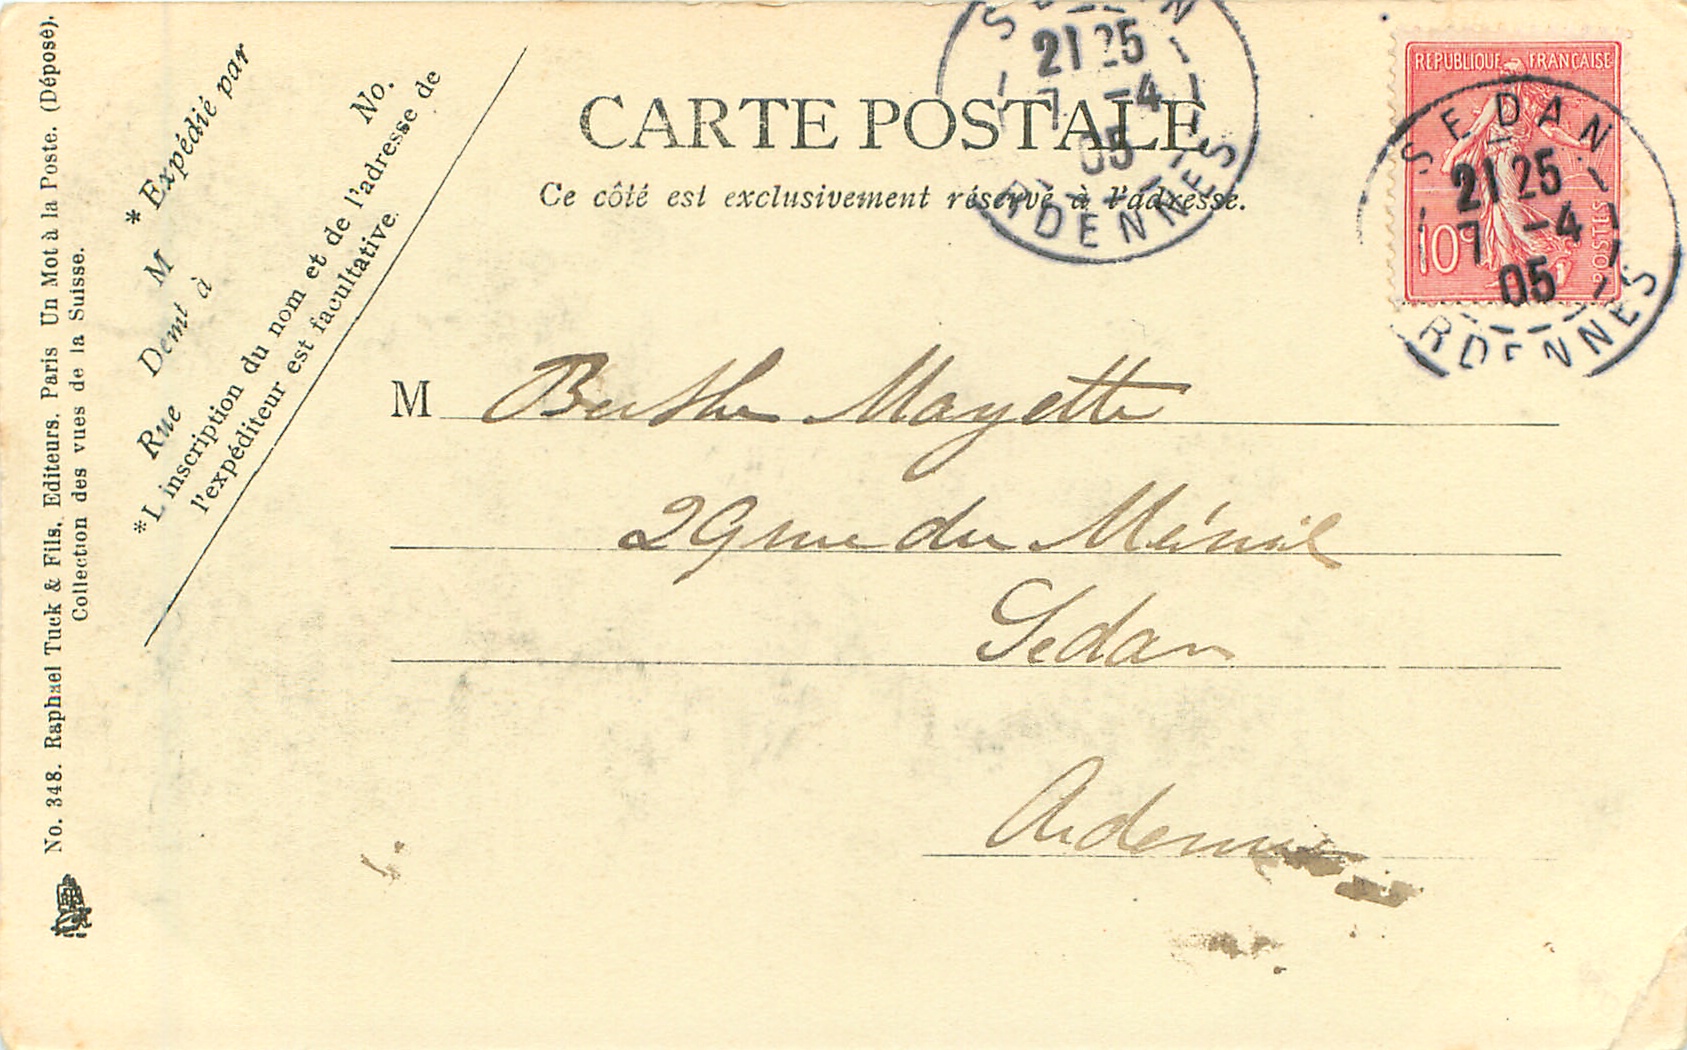 No. 348. Raphael Tuck & Fils. Editeurs. Paris Un Mot à la Poste. (Déposé).
Collection des vues de la Suisse.
* Expédié par
M
Demt à
Rue
No.
*L inscription du nom et de l'adresse de
l'expéditeur est facultative.
CARTE POSTALE
Ce côté est exclusivement réservé à l'adresse.
SEDAN
21 25
7 -4
05
RDENNES
REPUBLIQUE FRANÇAISE
10c
POSTES
SEDAN
21 25
7 -4
05
RDENNES
M Berthe Mayette
29 rue du Ménil
Sedan
Ardennes